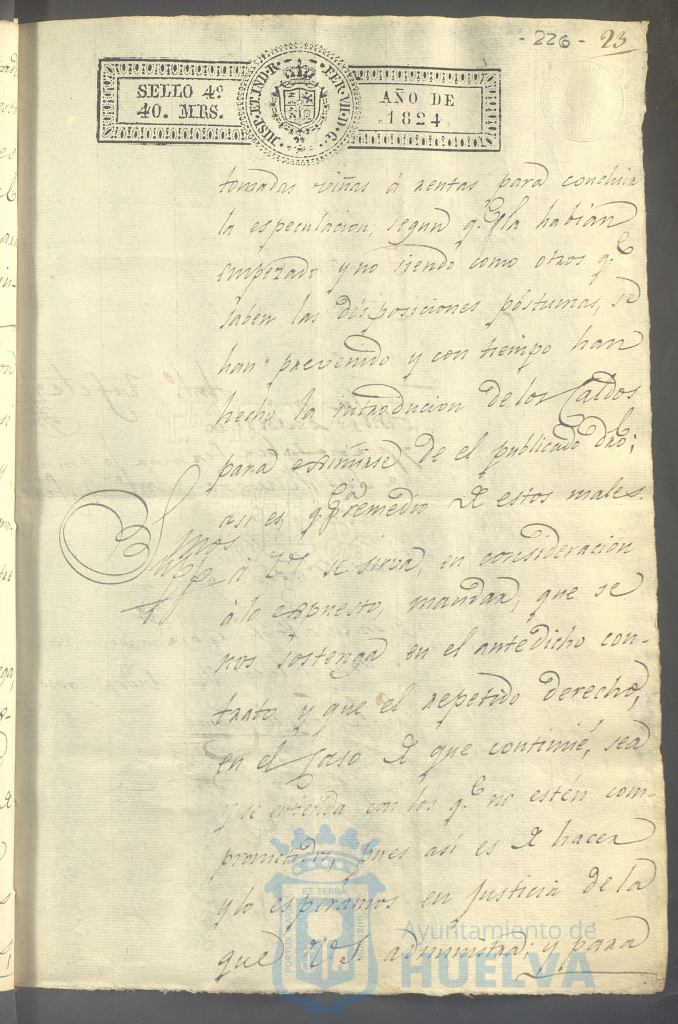 - 226 - 23
SELLO 4º
40. MRS.
FER. VII. D. G.
AÑO DE
1824.
tomadas viñas á rentas para concluir
la especulacion, segun q.e la habian
empezado y no siendo como otros q.e
saben las disposiciones póstumas, se
han prevenido y con tiempo han
hecho la introducion de los Caldos
para eximirse de el publicado dro;
asi es q.e remedio de estos males.
Supp.mos á VS se sirva, en consideracion
á lo expuesto, mandar, que se
nos sostenga en el antedicho con-
trato y que el repetido derecho,
en el caso de que continúe, sea
y se entienda con los q.e no estén com-
prometidos, pues asi es de hacer
y lo esperamos en Justicia de la
que V.S. administra; y para
Ayuntamiento de
HUELVA